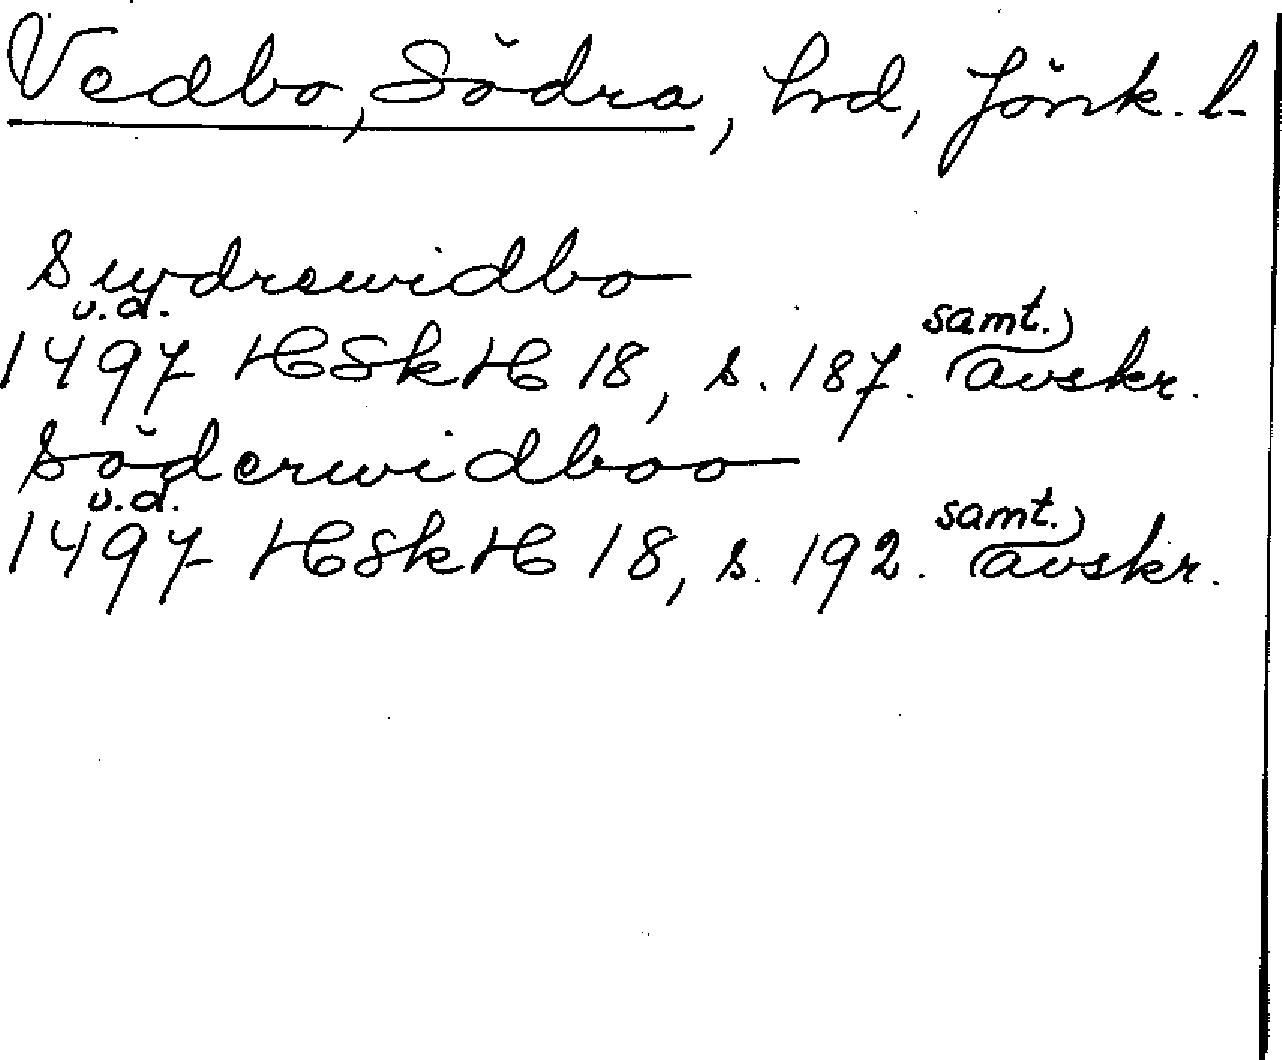 Vedbo, Södra, hrd, Jönk. l.
Swdrewidbo
u.d. samt.
1497 HSkH 18, s. 187. avskr.
Söderwidboo
u.d. samt.
1497 HSkH 18, s. 192. avskr.